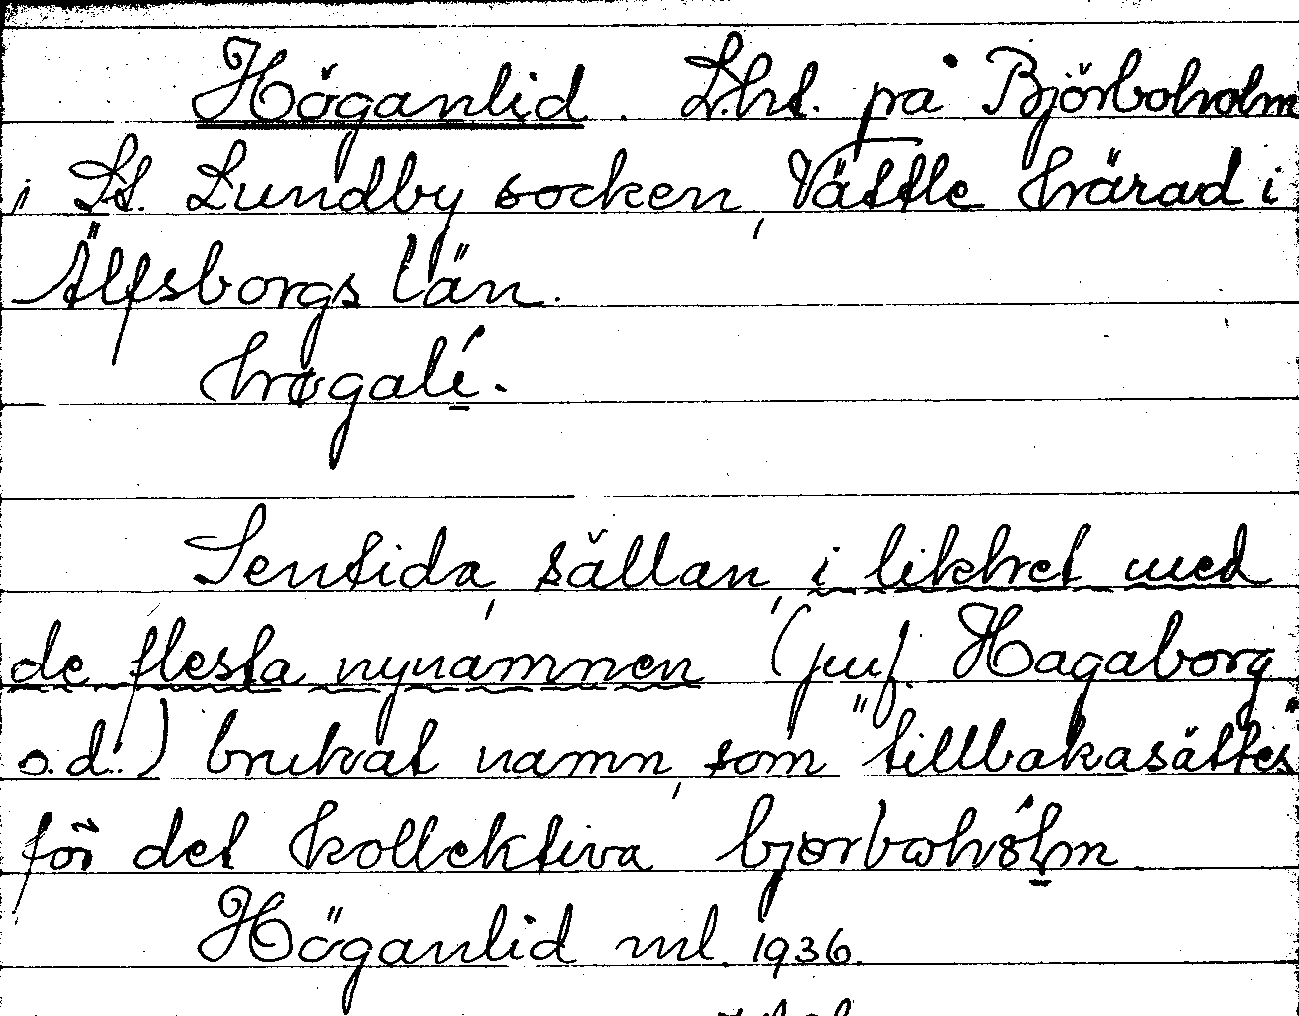 Höganlid. Lht. på Björboholm
i St. Lundby socken, Vättle härad i
Älfsborgs län.
høgalí.
Sentida, sällan, i likhet med
de flesta nynamnen (jmf. Hagaborg
o.d.) brukat namn, som "tillbakasättes"
för det kollektiva bjørbohólm
Höganlid ml. 1936.